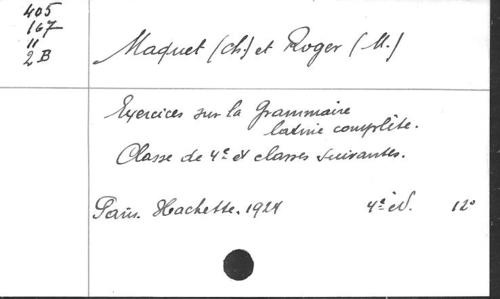 405
167
11
2B
Maquet (Ch.) et Roger (M.)
Exercices sur la Grammaire
latine complète.
Classe de 4e et classes suivantes.
Paris. Hachette. 1927 4e éd. 12°